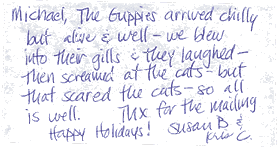 Michael, The Guppies arrived chilly
but alive & well - we blew
into their gills & they laughed -
then screamed at the cats - but
that scared the cats - so all
is well. Thx for the mailing
Happy Holidays! Susan B &
Kris C.